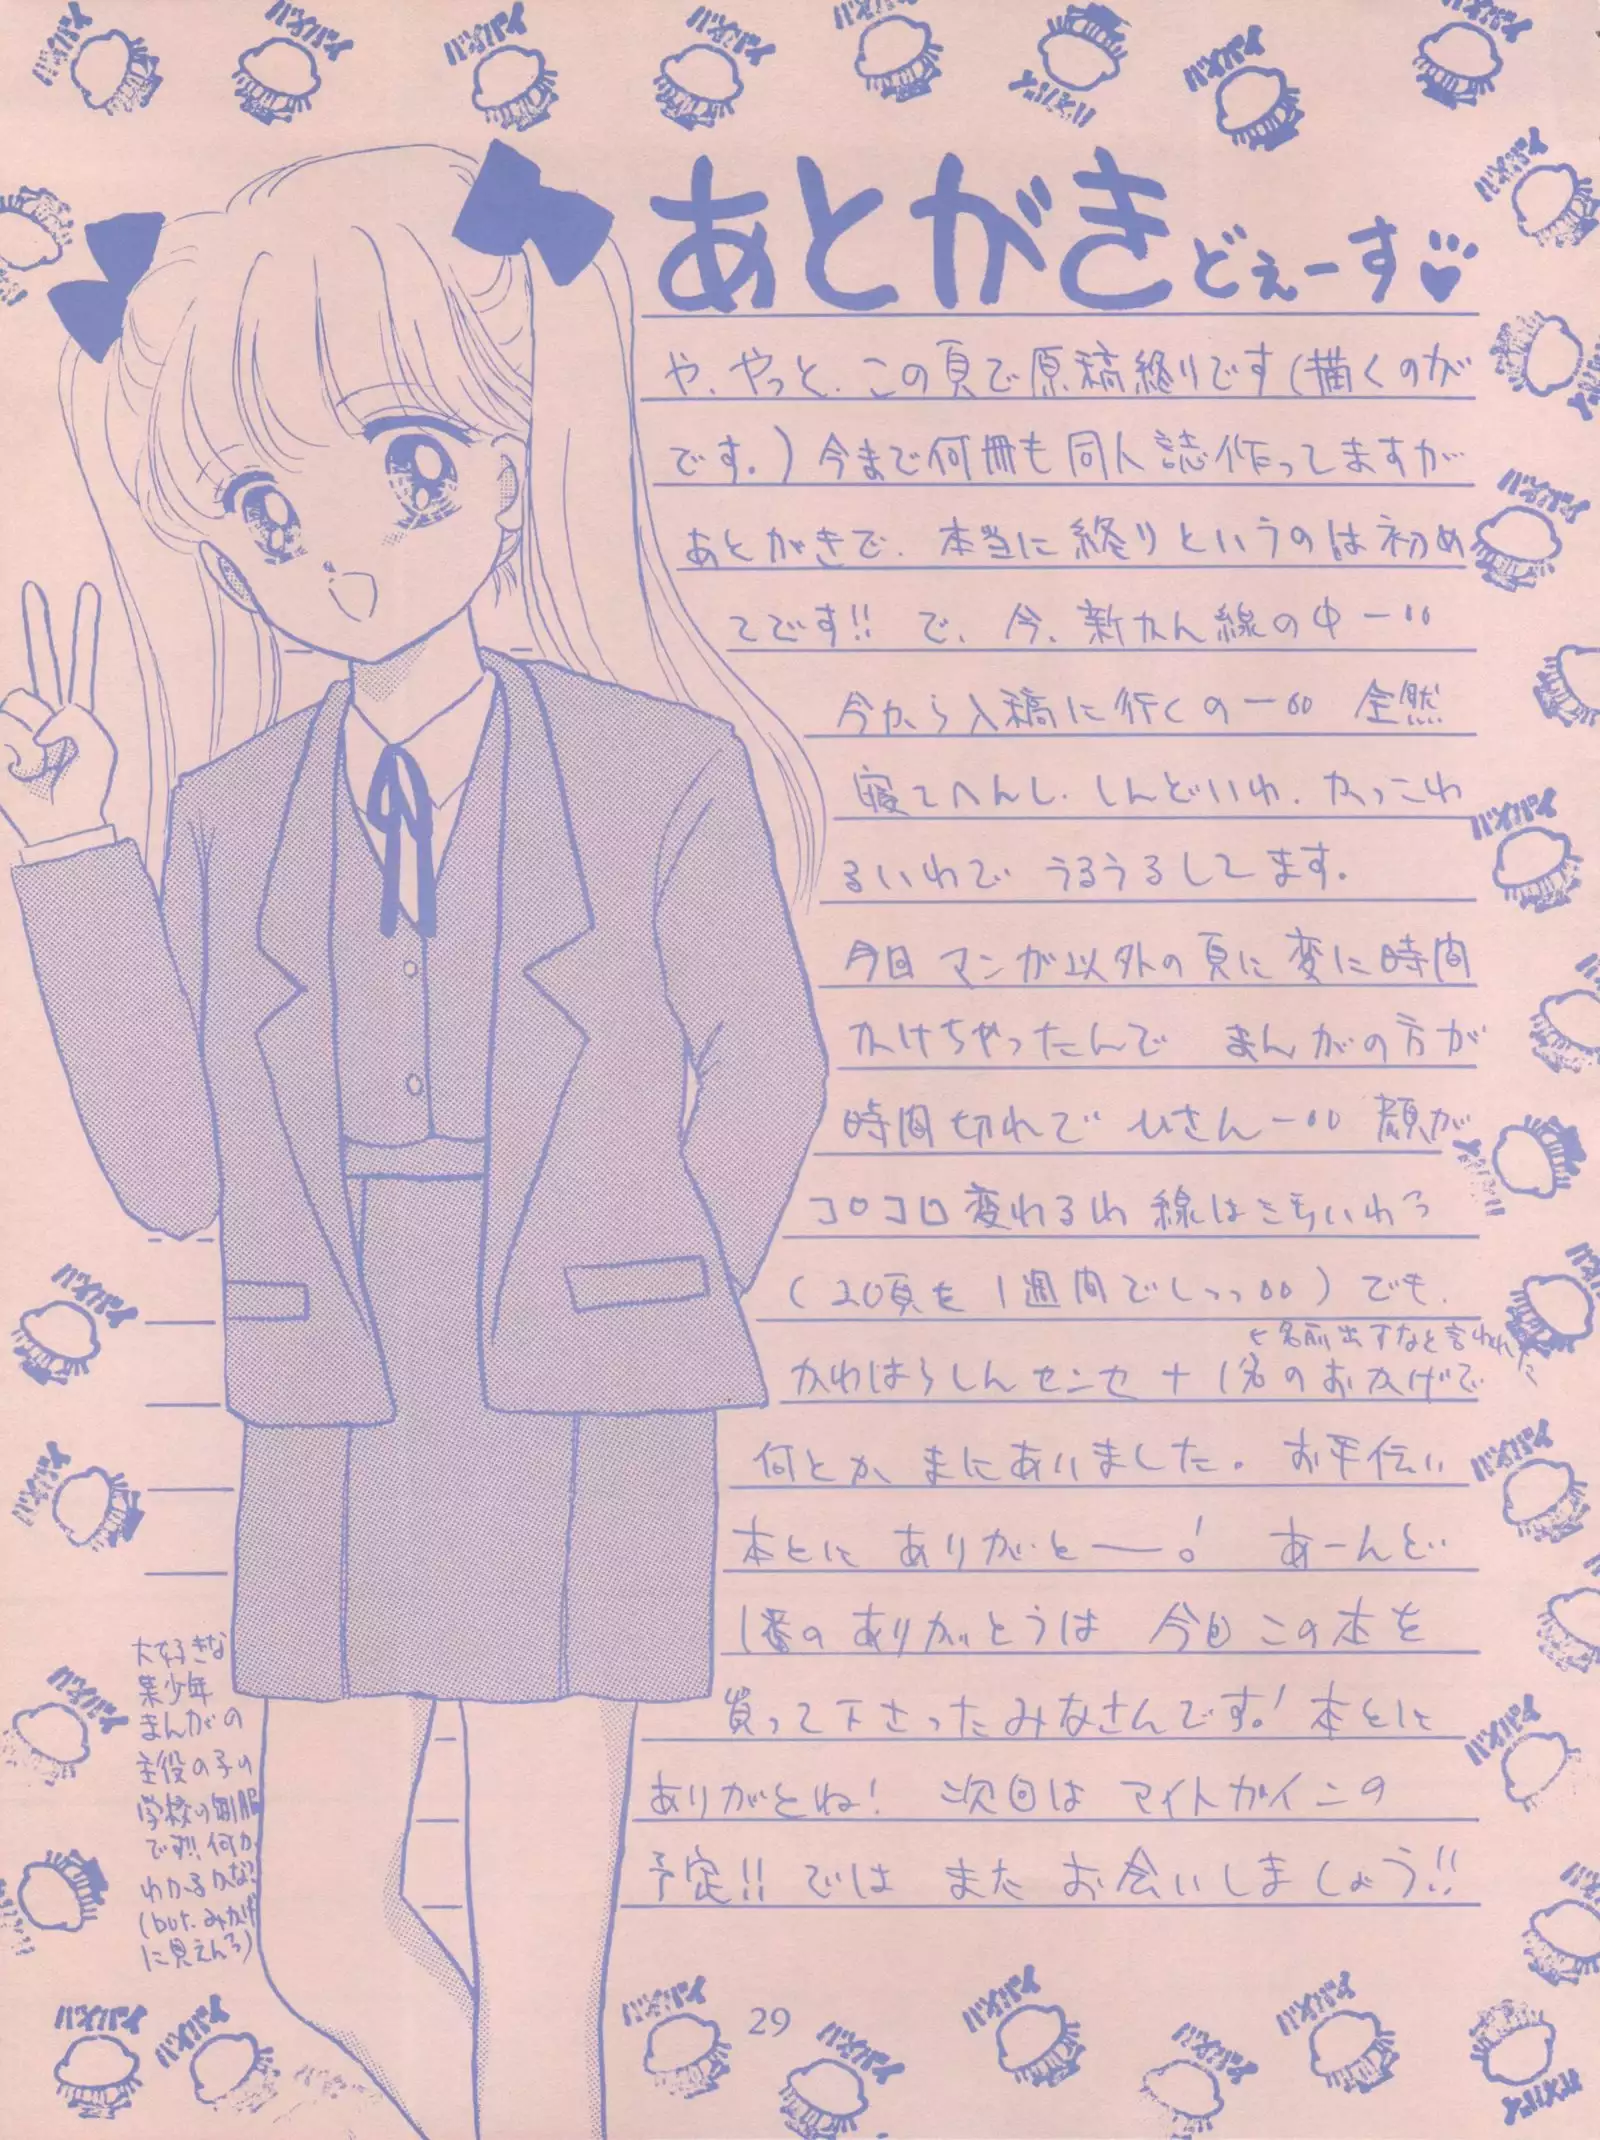 あとがき どぇーす
や、やっと、この頁で原稿終りです(描くのが
です。)今まで何冊も同人誌作ってますが
あとがきで、本当に終りというのは初め
てです!! で、今、新かん線の中ー
今から入稿に行くのー 全然
寝てへんし、しんどいわ、かっこわ
るいわで うるうるしてます。
今回マンガ以外の頁に変に時間
かけちゃったんで まんがの方が
時間切れで ひさんー 顔が
コロコロ変わるわ 線は
(20頁を1週間でしっっ)でも、
←名前出すなと言われた
かわはらしんセンセ+1名のおかげで
何とか、まにあいました。 お手伝い
本とに ありがとー! あーんど
1番のありがとうは 今回この本を
買って下さったみなさんです!本とに
ありがとね! 次回はマイトガインの
予定!! では また お会いしましょう!!
大好きな
某少年
まんがの
主役の子の
学校の制服
です!!何か
わかるかな?
(but、みかけ
に見えんっ)
29